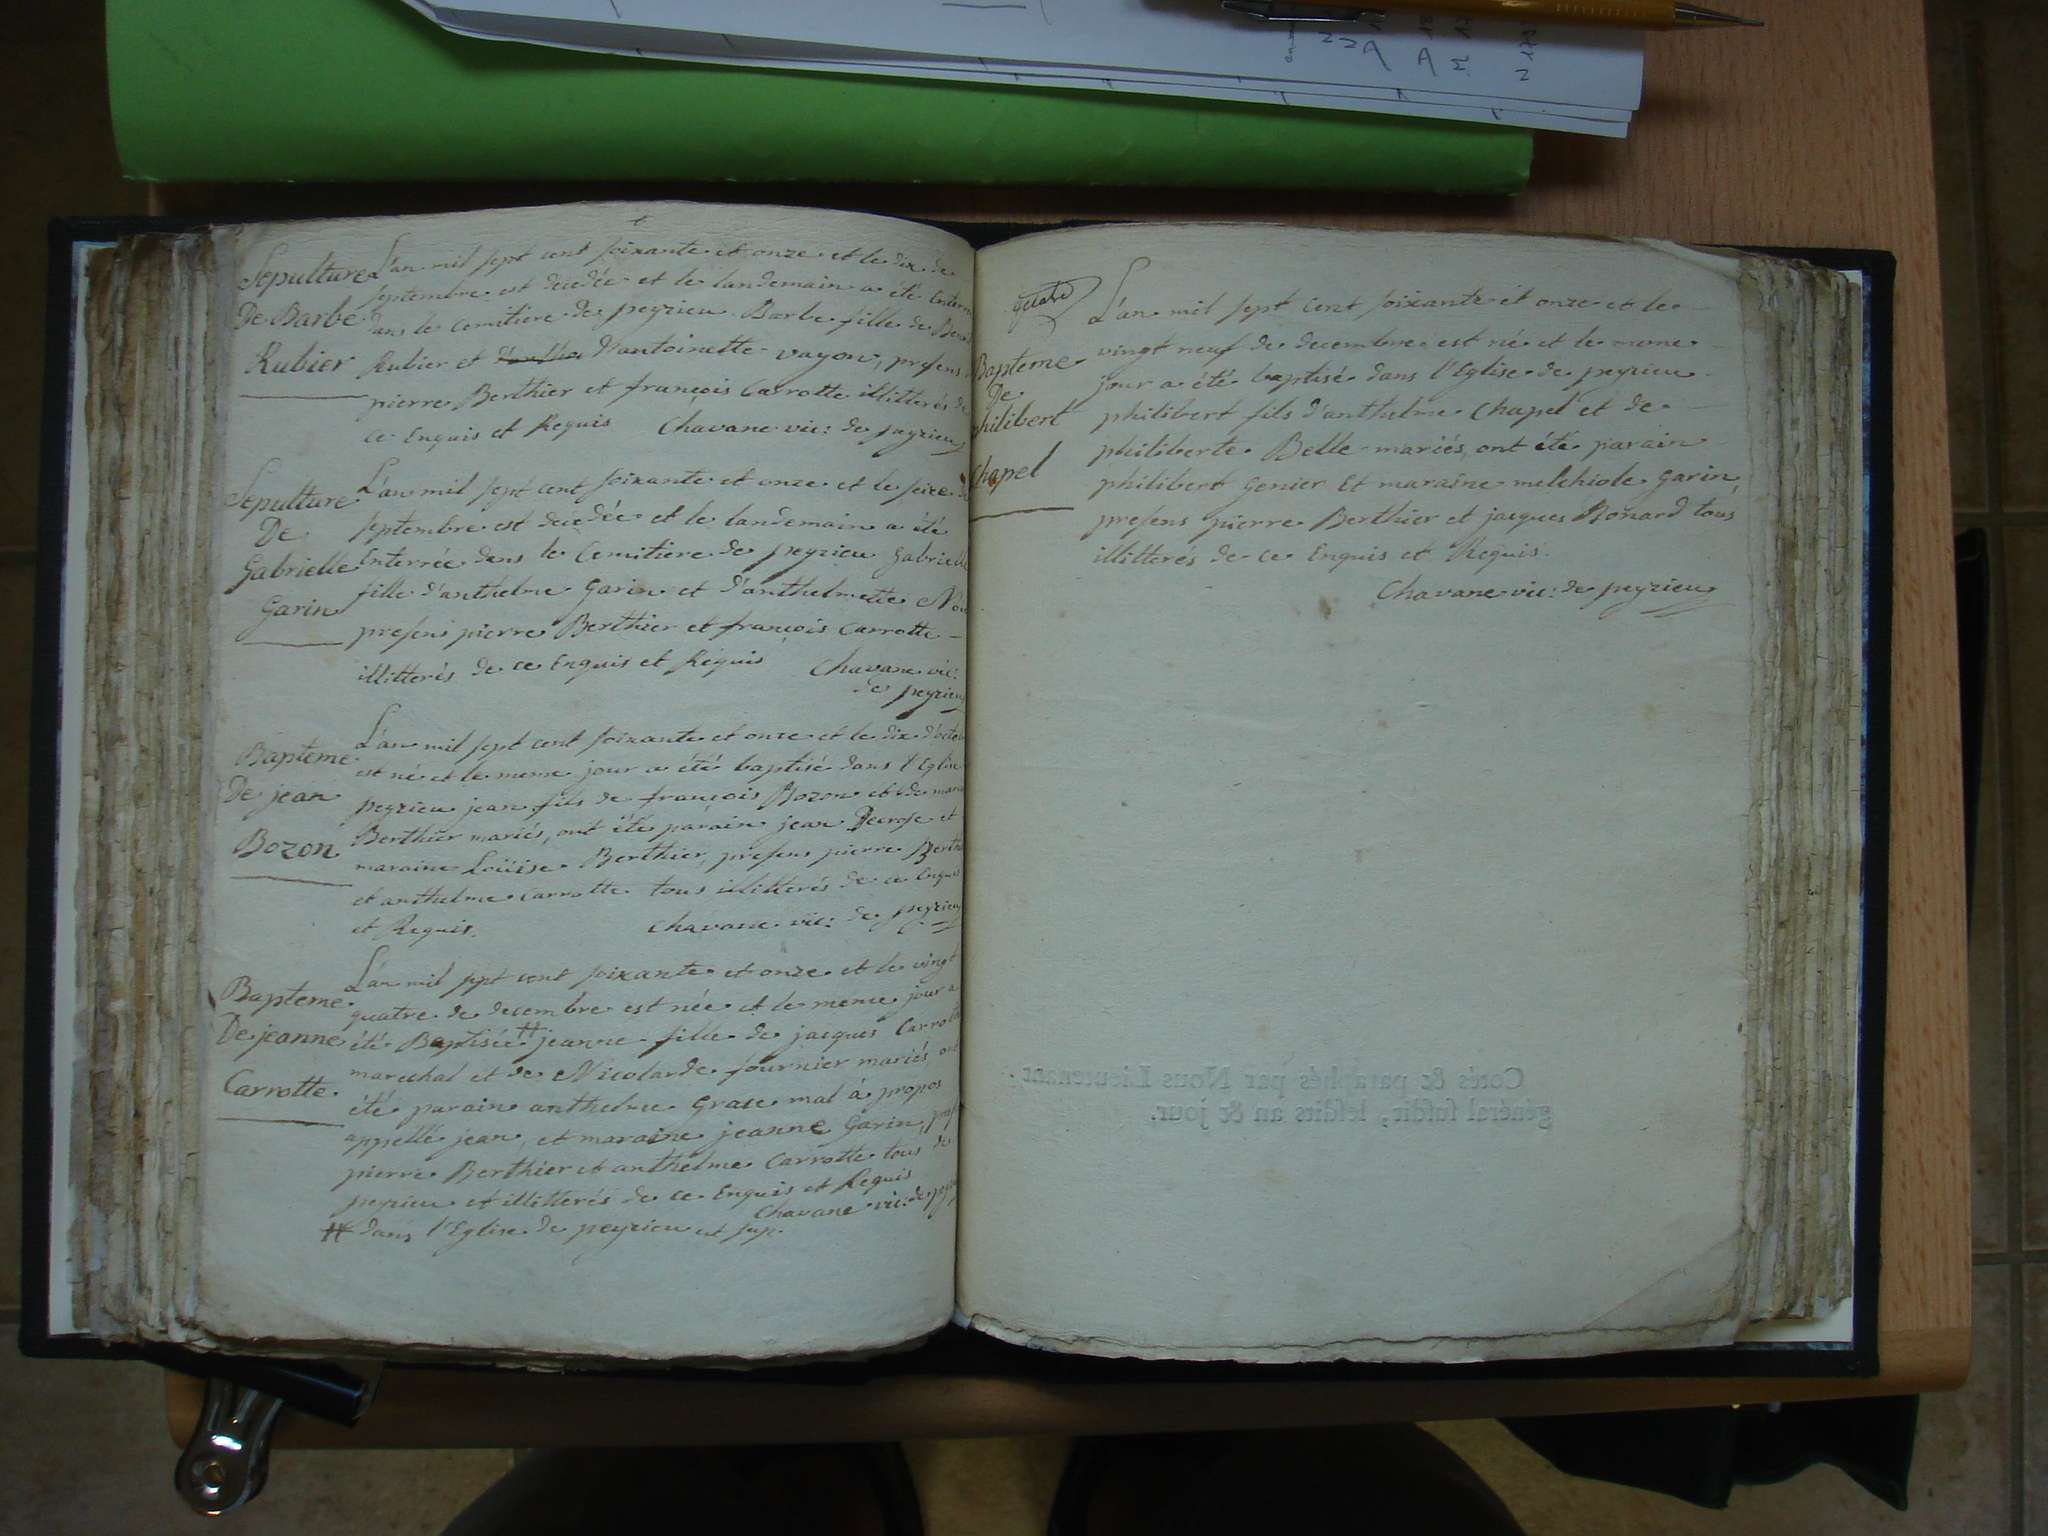 Sepulture
De Barbe
Rubier
L'an mil sept cent soixante et onze et le dix de
septembre est decedée et le landemain a été Enterrée
dans le Cemitiere de peyzieu Barbe fille de
Rubier et D'antoinette vayon, presens
pierre Berthier et françois Carrotte illitterés de
ce Enquis et Requis Chavane vic: de peyzieu
Sepulture
De
Gabrielle
Garin
L'an mil sept cent soixante et onze et le seize de
septembre est decedée et le landemain a été
Enterrée dans le Cemitiere de peyzieu Gabrielle
fille d'anthelme Garin et d'anthelmette
presens pierre Berthier et françois Carrotte
illitterés de ce Enquis et Requis Chavane vic:
de peyzieu
Bapteme
De jean
Bozon
L'an mil sept cent soixante et onze et le dix d'octo
est né et le meme jour a été baptisé dans l'Eglise
peyzieu jean fils de françois Bozon et de marie
Berthier mariés, ont été parain jean Decrose et
maraine Loüise Berthier, presens pierre Berth
et anthelme Carrotte tous illitterés de ce Enquis
et Requis. Chavane vic: de peyzieu
Bapteme
De jeanne
Carrotte
L'an mil sept cent soixante et onze et le vingt
quatre de decembre est née et le meme jour a
été Baptisée # jeanne fille de jacques Carrotte
marechal et de Nicolarde fournier mariés, ont
été parain anthelme Grase mal à propos
appellé jean, et maraine jeanne Garin, pres
pierre Berthier et anthelme Carrotte tous de
peyzieu et illitterés de ce Enquis et Requis
Chavane vic: de peyzi
# dans l'Eglise de peyzieu est sup.
Bapteme
De
philibert
Chapel
L'an mil sept cent soixante et onze et le
vingt neuf de decembre est né et le meme
jour a été baptisé dans l'Eglise de peyzieu
philibert fils d'anthelme Chapel et de
philiberte Belle mariés, ont été parain
philibert Genier Et maraine melchiole Garin,
presens pierre Berthier et jacques Bonard tous
illitterés de ce Enquis et Requis.
Chavane vic: de peyzieu
Cotés & paraphés par Nous Lieutenant
général susdit, lesdits an & jour.